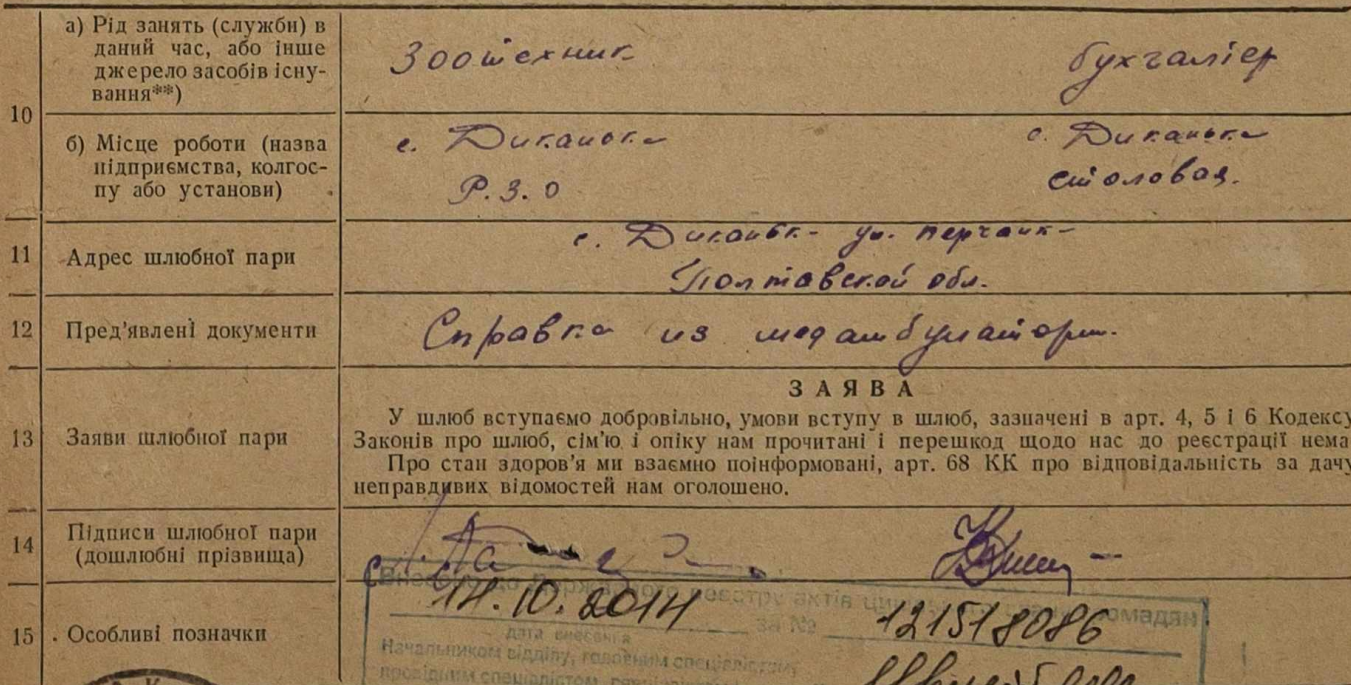 10
а) Рід занять (служби) в
даний час, або інше
джерело засобів існу-
вання**)
Зоотехник
бухгалтер
б) Місце роботи (назва
підприємства, колгос-
пу або установи)
с. Диканька
Р.З.О
с. Диканька
столовая.
11
Адрес шлюбної пари
с. Диканьк- ул.
Полтавской обл.
12
Пред'явлені документи
Справка из медамбулатории.
13
Заяви шлюбної пари
ЗАЯВА
У шлюб вступаємо добровільно, умови вступу в шлюб, зазначені в арт. 4, 5 і 6 Кодексу
Законів про шлюб, сім'ю і опіку нам прочитані і перешкод щодо нас до реєстрації нема
Про стан здоров'я ми взаємно поінформовані, арт. 68 КК про відповідальність за дачу
неправдивих відомостей нам оголошено.
14
Підписи шлюбної пари
(дошлюбні прізвища)
15
Особливі позначки
Внесено до Державного реєстру актів цивільного стану громадян
14.10.2014 за № 121518086
дата внесення
Начальником відділу, головним спеціалістом,
провідним спеціалістом,